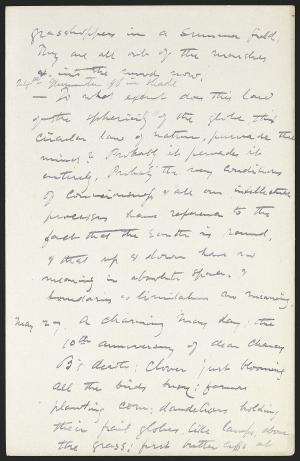 grasshoppers in a summer field.
They are all out of the marshes
& into the woods now.
24th Thermometer 90 in shade
— To what extent does this law
of the sphericity of the globe this
circular law of nature, pervade the
mind? Probably it pervades it
entirely. Probably the very conditions
of consciousness & all our intellectual
processes have reference to the
fact that the Earth is round,
& that up & down have no
meaning in absolute space, &
boundaries & limitations no meaning.
May 27. A charming May day: the
10th anniversary of dear Channy
B's death; clover just blooming
all the birds busy; farmers
planting corn; dandelions holding
their frail globes, like lamps, above
the grass; first buttercups at